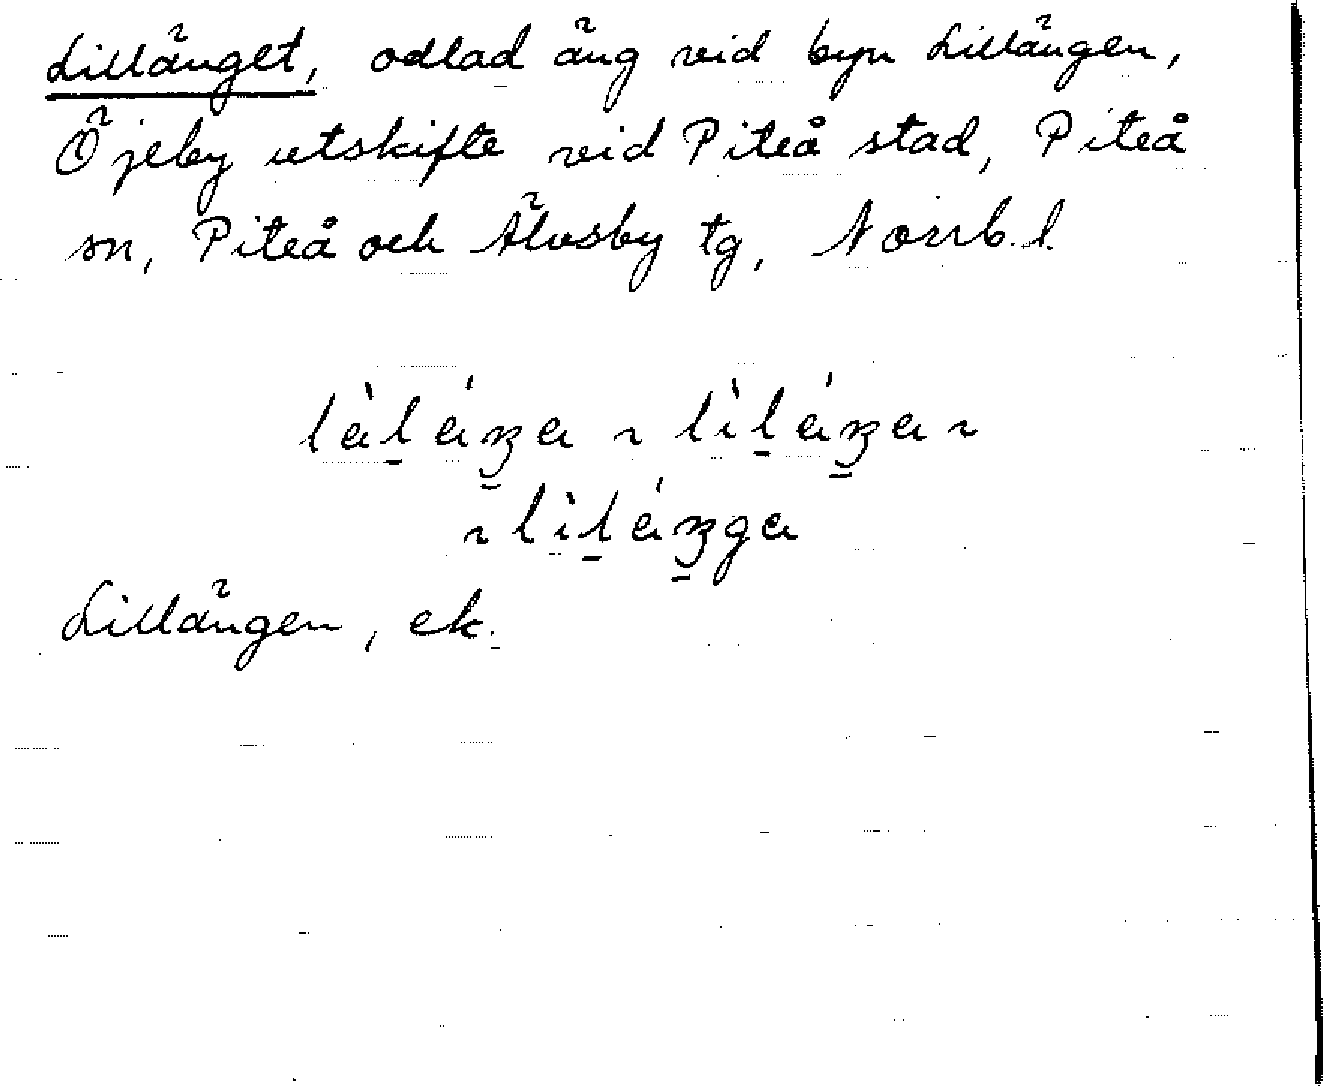 Lillänget, odlad äng vid byn Lillängen,
Öjeby utskifte vid Piteå stad, Piteå
sn, Piteå och Älvsby tg, Norrb. l.
Lillängen, ek.